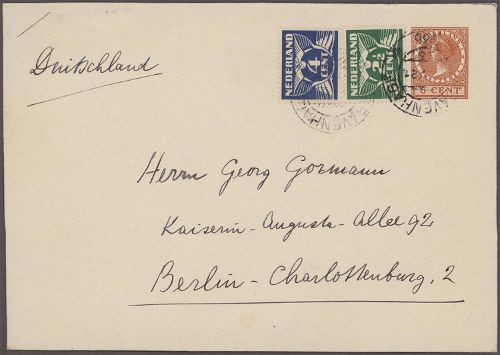 Deutschland
NEDERLAND
4
CENT
NEDERLAND
2½
CENT
CENT
'S GRAVENHAGE
Herrn Georg Gormann
Kaiserin-Augusta-Allee 92
Berlin-Charlottenburg, 2